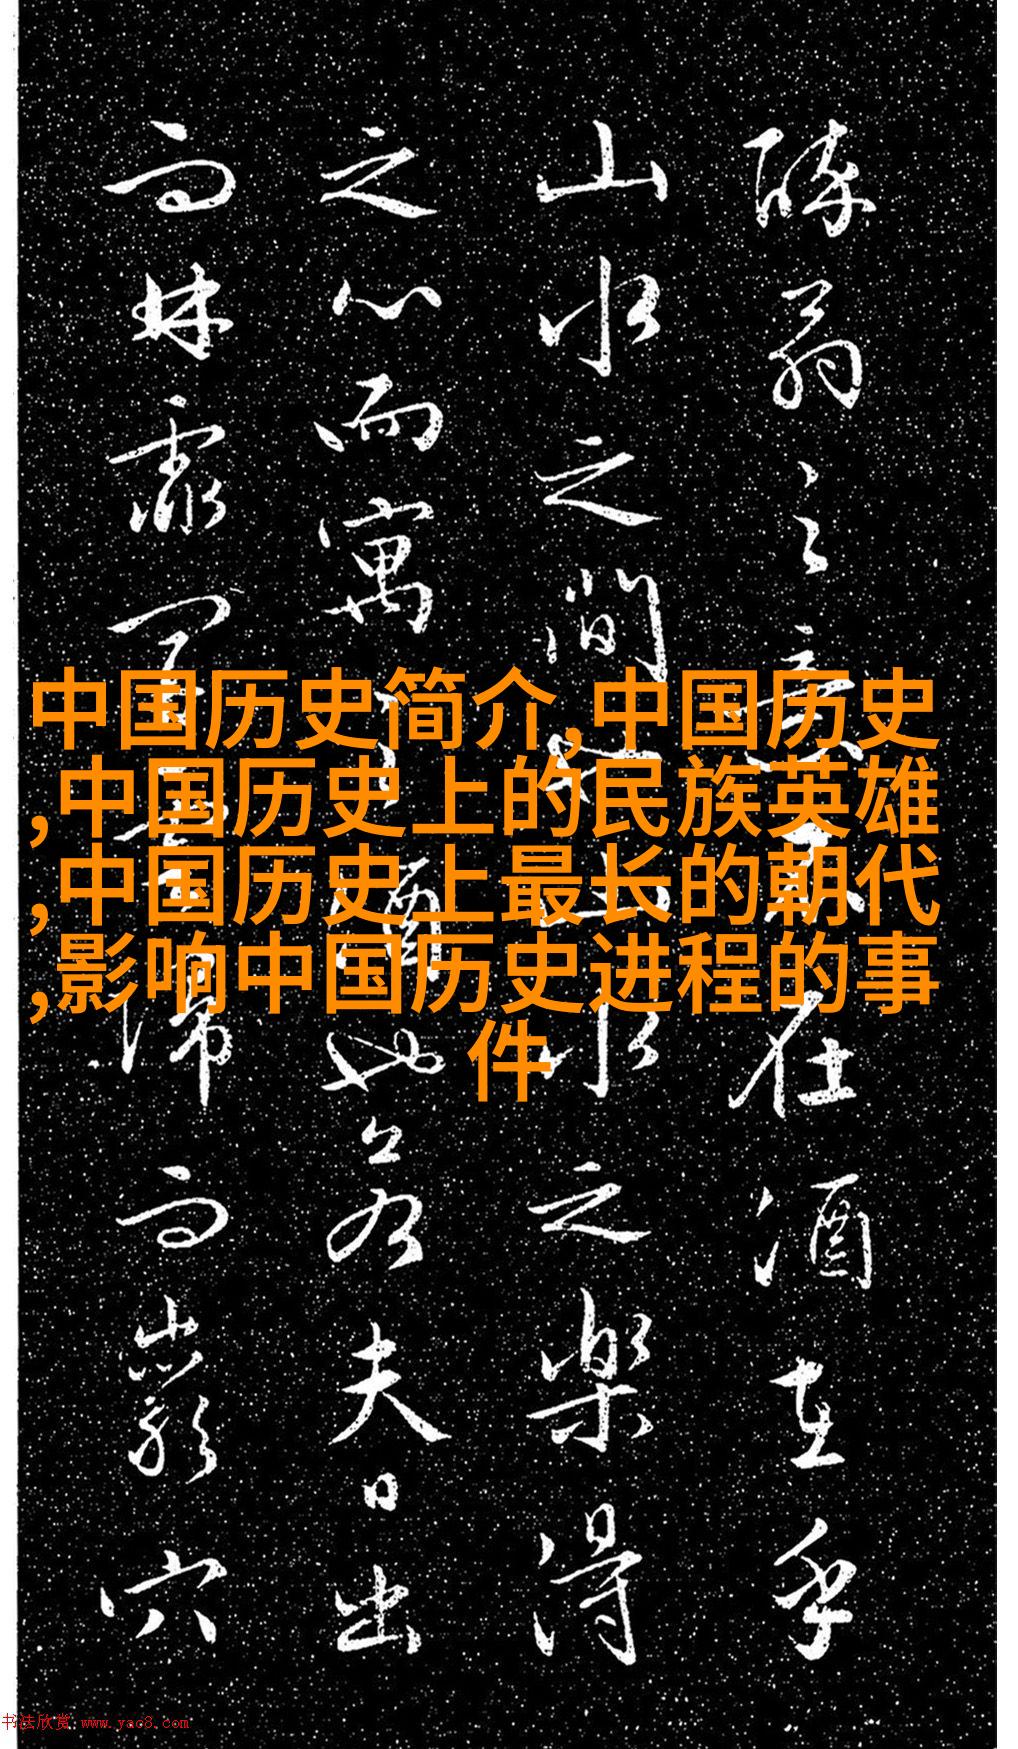 醉翁之意不在酒在乎
山水之間也山水之樂得
之心而寓之酒也若夫日出
而林霏開雲歸而巖穴
中国历史简介,中国历史
,中国历史上的民族英雄
,中国历史上最长的朝代
,影响中国历史进程的事
件
书法欣赏 www.yac8.com